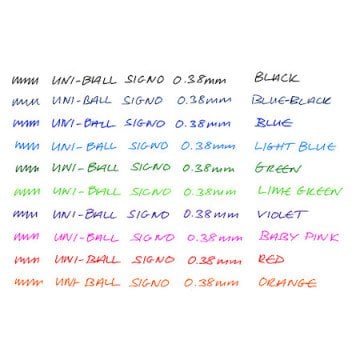 mmm UNI-BALL SIGNO 0.38mm BLACK
mmm UNI-BALL SIGNO 0.38mm BLUE-BLACK
mmm UNI-BALL SIGNO 0.38mm BLUE
mmm UNI-BALL SIGNO 0.38mm LIGHT BLUE
mmm UNI-BALL SIGNO 0.38mm GREEN
mmm UNI-BALL SIGNO 0.38mm LIME GREEN
mmm UNI-BALL SIGNO 0.38mm VIOLET
mmm UNI-BALL SIGNO 0.38mm BABY PINK
mmm UNI-BALL SIGNO 0.38mm RED
mmm UNI-BALL SIGNO 0.38mm ORANGE